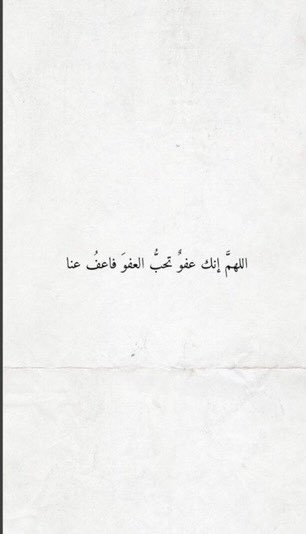 اللهمَّ إنك عفوٌ تحبُّ العفوَ فاعفُ عنا